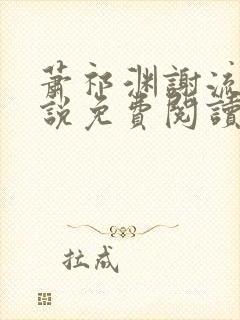 蕭祁渊謝流
說免費閱讀
拉成